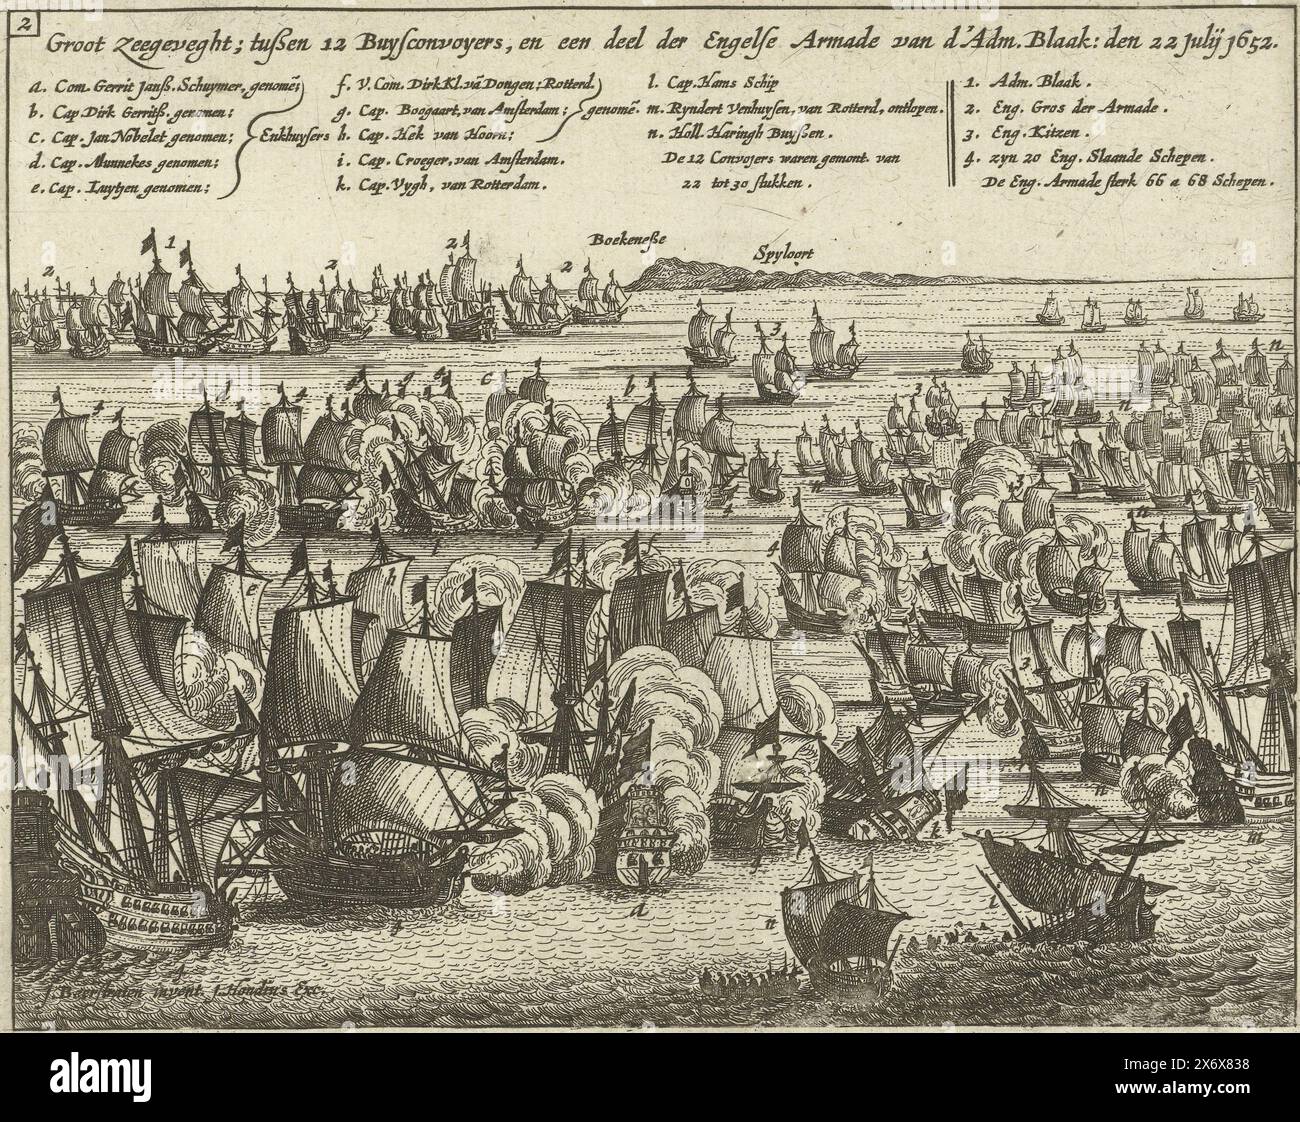 2
Groot Zeegeveght; tußen 12 Buysconvoyers, en een deel der Engelse Armade van d'Adm. Blaak: den 22 Julij 1652.
a. Com. Gerrit Janß. Schuymer, genomē;
b. Cap. Dirk Gerritß. genomen;
c. Cap. Jan Nobelet genomen;
d. Cap. Munnekes genomen;
e. Cap. Luytjen genomen;
Enkhuysers
f. V. Com. Dirk Kl. vā Dongen; Rotterd.
g. Cap. Boogaart, van Amsterdam;
h. Cap. Hek van Hoorn;
genomē.
i. Cap. Croeger, van Amsterdam.
k. Cap. Vygh, van Rotterdam.
l. Cap. Hans Schip
m. Ryndert Venhuysen, van Rotterd, ontlopen.
n. Holl. Haringh Buyßen.
De 12 Convojers waren gemont. van
22 tot 30 stukken.
1. Adm. Blaak.
2. Eng. Gros der Armade.
3. Eng. Kitzen.
4. zyn 20 Eng. Slaande Schepen.
De Eng. Armade sterk 66 a 68 Schepen.
Boekeneße
Spyloort
1
2
2
2
2
3
n
4
d
4
g
4
c
b
3
n
n
4
3
f
4
h
e
3
n
m
k
f
d
l
n
4
invent. J. Hondius Exc.
alamy
Image ID: 2X6X838
www.alamy.com